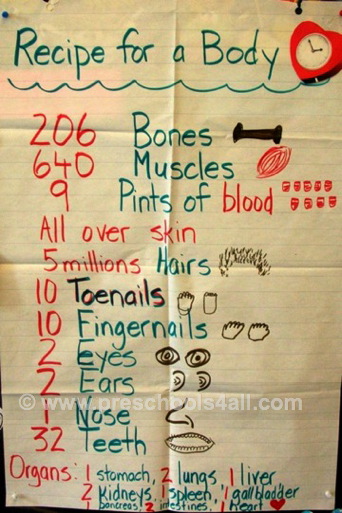 Recipe for a Body
206 Bones
640 Muscles
9 Pints of blood
All over skin
5 millions Hairs
10 Toenails
10 Fingernails
2 Eyes
2 Ears
© www.preschools4all.com
1 Nose
32 Teeth
Organs: 1 stomach, 2 lungs, 1 liver
2 Kidneys, 1 spleen, 1 gallbladder
1 pancreas, 2 intestines, 1 heart